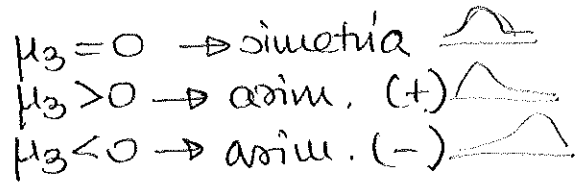 μ₃ = 0 → simetría
μ₃ > 0 → asim. (+)
μ₃ < 0 → asim. (-)